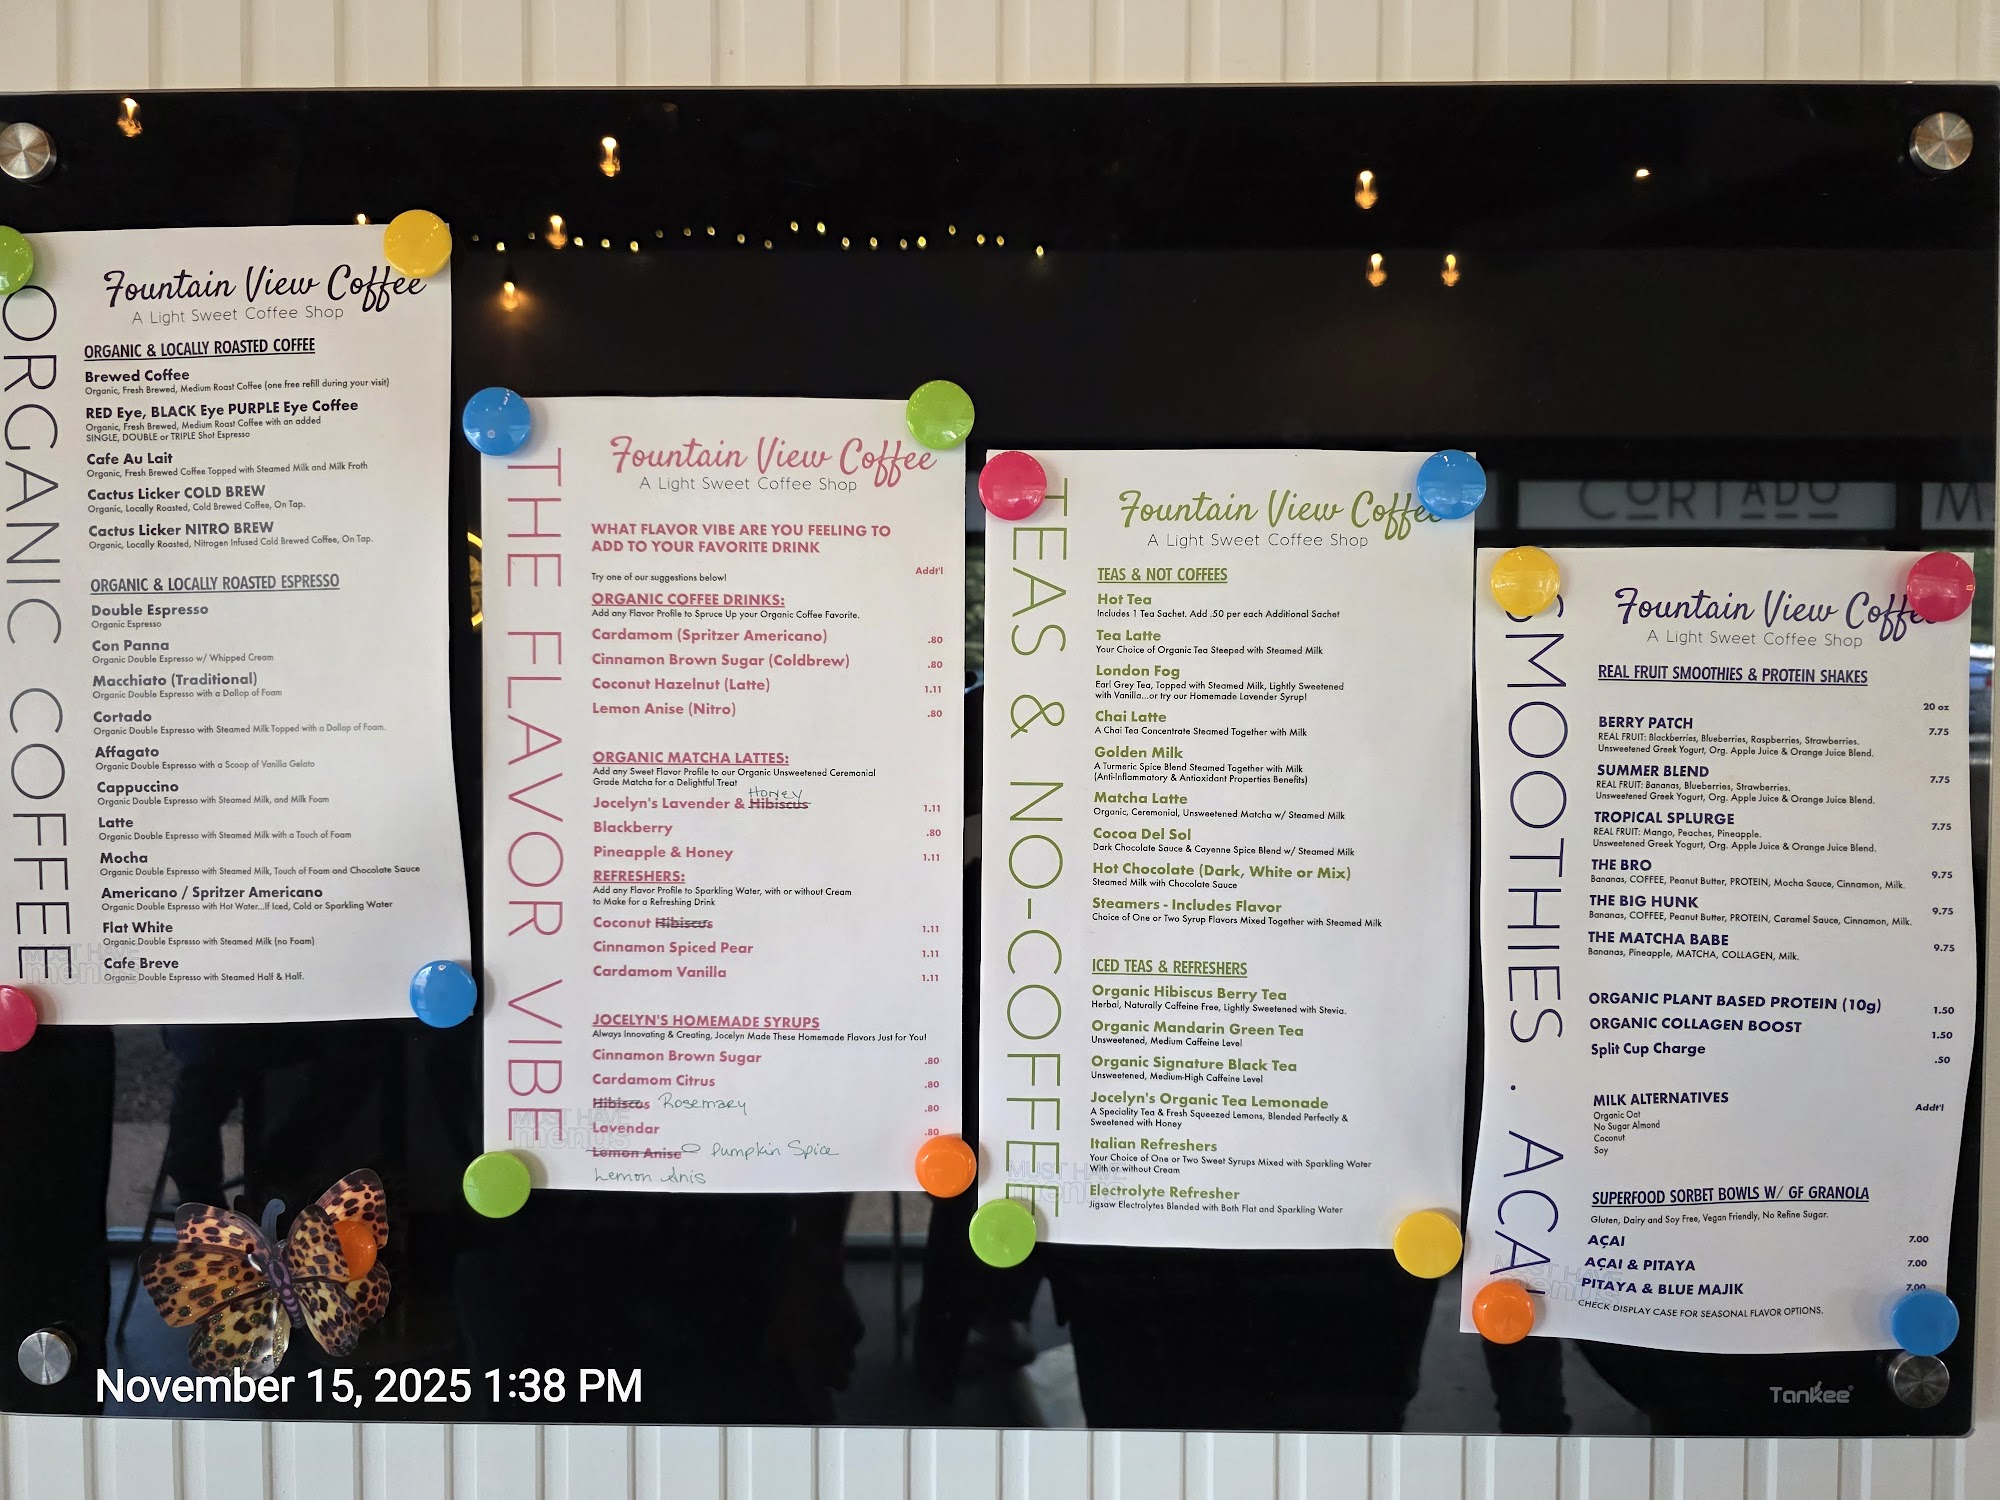 Fountain View Coffee
A Light Sweet Coffee Shop
ORGANIC COFFEE
ORGANIC & LOCALLY ROASTED COFFEE
Brewed Coffee
Organic, Fresh Brewed, Medium Roast Coffee (one free refill during your visit)
RED Eye, BLACK Eye PURPLE Eye Coffee
Organic, Fresh Brewed, Medium Roast Coffee with an added
SINGLE, DOUBLE or TRIPLE Shot Espresso
Cafe Au Lait
Organic, Fresh Brewed Coffee Topped with Steamed Milk and Milk Froth
Cactus Licker COLD BREW
Organic, Locally Roasted, Cold Brewed Coffee, On Tap.
Cactus Licker NITRO BREW
Organic, Locally Roasted, Nitrogen Infused Cold Brewed Coffee, On Tap.
ORGANIC & LOCALLY ROASTED ESPRESSO
Double Espresso
Organic Espresso
Con Panna
Organic Double Espresso w/ Whipped Cream
Macchiato (Traditional)
Organic Double Espresso with a Dollop of Foam
Cortado
Organic Double Espresso with Steamed Milk Topped with a Dollop of Foam.
Affagato
Organic Double Espresso with a Scoop of Vanilla Gelato
Cappuccino
Organic Double Espresso with Steamed Milk, and Milk Foam
Latte
Organic Double Espresso with Steamed Milk with a Touch of Foam
Mocha
Organic Double Espresso with Steamed Milk, Touch of Foam and Chocolate Sauce
Americano / Spritzer Americano
Organic Double Espresso with Hot Water...If Iced, Cold or Sparkling Water
Flat White
Organic Double Espresso with Steamed Milk (no Foam)
Cafe Breve
Organic Double Espresso with Steamed Half & Half.
MUST HAVE
menus
Fountain View Coffee
A Light Sweet Coffee Shop
THE FLAVOR VIBE
WHAT FLAVOR VIBE ARE YOU FEELING TO
ADD TO YOUR FAVORITE DRINK
Try one of our suggestions below! Addt'l
ORGANIC COFFEE DRINKS:
Add any Flavor Profile to Spruce Up your Organic Coffee Favorite.
Cardamom (Spritzer Americano) .80
Cinnamon Brown Sugar (Coldbrew) .80
Coconut Hazelnut (Latte) 1.11
Lemon Anise (Nitro) .80
ORGANIC MATCHA LATTES:
Add any Sweet Flavor Profile to our Organic Unsweetened Ceremonial
Grade Matcha for a Delightful Treat
Honey
Jocelyn's Lavender & Hibiscus 1.11
Blackberry .80
Pineapple & Honey 1.11
REFRESHERS:
Add any Flavor Profile to Sparkling Water, with or without Cream
to Make for a Refreshing Drink
Coconut Hibiscus 1.11
Cinnamon Spiced Pear 1.11
Cardamom Vanilla 1.11
JOCELYN'S HOMEMADE SYRUPS
Always Innovating & Creating, Jocelyn Made These Homemade Flavors Just for You!
Cinnamon Brown Sugar .80
Cardamom Citrus .80
Hibiscus Rosemary .80
Lavendar .80
Lemon Anise Pumpkin Spice
Lemon Anis
MUST HAVE
menus
Fountain View Coffee
A Light Sweet Coffee Shop
TEAS & NO-COFFEE
TEAS & NOT COFFEES
Hot Tea
Includes 1 Tea Sachet. Add .50 per each Additional Sachet
Tea Latte
Your Choice of Organic Tea Steeped with Steamed Milk
London Fog
Earl Grey Tea, Topped with Steamed Milk, Lightly Sweetened
with Vanilla...or try our Homemade Lavender Syrup!
Chai Latte
A Chai Tea Concentrate Steamed Together with Milk
Golden Milk
A Turmeric Spice Blend Steamed Together with Milk
(Anti-Inflammatory & Antioxidant Properties Benefits)
Matcha Latte
Organic, Ceremonial, Unsweetened Matcha w/ Steamed Milk
Cocoa Del Sol
Dark Chocolate Sauce & Cayenne Spice Blend w/ Steamed Milk
Hot Chocolate (Dark, White or Mix)
Steamed Milk with Chocolate Sauce
Steamers - Includes Flavor
Choice of One or Two Syrup Flavors Mixed Together with Steamed Milk
ICED TEAS & REFRESHERS
Organic Hibiscus Berry Tea
Herbal, Naturally Caffeine Free, Lightly Sweetened with Stevia.
Organic Mandarin Green Tea
Unsweetened, Medium Caffeine Level
Organic Signature Black Tea
Unsweetened, Medium-High Caffeine Level
Jocelyn's Organic Tea Lemonade
A Speciality Tea & Fresh Squeezed Lemons, Blended Perfectly &
Sweetened with Honey
Italian Refreshers
Your Choice of One or Two Sweet Syrups Mixed with Sparkling Water
With or without Cream
Electrolyte Refresher
Jigsaw Electrolytes Blended with Both Flat and Sparkling Water
MUST HAVE
menus
CORTADO
Fountain View Coffee
A Light Sweet Coffee Shop
SMOOTHIES . ACAI
REAL FRUIT SMOOTHIES & PROTEIN SHAKES
20 oz
BERRY PATCH 7.75
REAL FRUIT: Blackberries, Blueberries, Raspberries, Strawberries.
Unsweetened Greek Yogurt, Org. Apple Juice & Orange Juice Blend.
SUMMER BLEND 7.75
REAL FRUIT: Bananas, Blueberries, Strawberries.
Unsweetened Greek Yogurt, Org. Apple Juice & Orange Juice Blend.
TROPICAL SPLURGE 7.75
REAL FRUIT: Mango, Peaches, Pineapple.
Unsweetened Greek Yogurt, Org. Apple Juice & Orange Juice Blend.
THE BRO 9.75
Bananas, COFFEE, Peanut Butter, PROTEIN, Mocha Sauce, Cinnamon, Milk.
THE BIG HUNK 9.75
Bananas, COFFEE, Peanut Butter, PROTEIN, Caramel Sauce, Cinnamon, Milk.
THE MATCHA BABE 9.75
Bananas, Pineapple, MATCHA, COLLAGEN, Milk.
ORGANIC PLANT BASED PROTEIN (10g) 1.50
ORGANIC COLLAGEN BOOST 1.50
Split Cup Charge .50
MILK ALTERNATIVES Addt'l
Organic Oat
No Sugar Almond
Coconut
Soy
SUPERFOOD SORBET BOWLS W/ GF GRANOLA
Gluten, Dairy and Soy Free, Vegan Friendly, No Refine Sugar.
AÇAI 7.00
AÇAI & PITAYA 7.00
PITAYA & BLUE MAJIK 7.00
CHECK DISPLAY CASE FOR SEASONAL FLAVOR OPTIONS.
MUST HAVE
menus
Tankee
November 15, 2025 1:38 PM